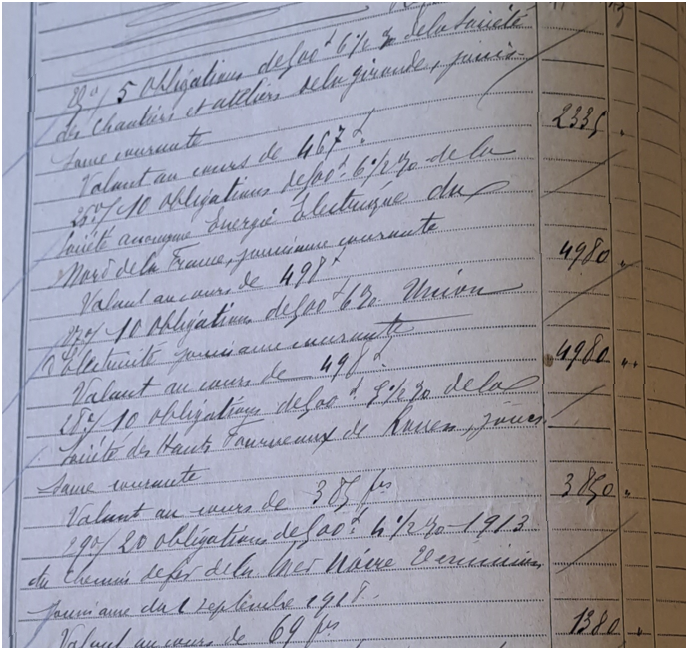 5 Obligations de 500 f 6 % de la Société
des Chantiers et ateliers de la gironde, jouis-
sance courante
Valant au cours de 467 f 2335 "
10 obligations de 500 f 6 1/2 % de la
Société anonyme Energie Electrique du
Nord de la France, jouissance courante
Valant au cours de 498 f 4980 "
27°/ 10 obligations de 500 f 6 % Union
d'Electricité jouissance courante
Valant au cours de 498 f 4980 "
28°/ 10 obligations de 500 f % de la
Société des Hauts Fourneaux de Rouen, jouis-
sance courante
Valant au cours de 385 frs 3850 "
29°/ 20 obligations de 500 f 4 1/2 % 1913
du Chemin de fer de la Mer Noire
jouissance du 1 septembre 1918.
Valant au cours de 69 frs 1380 "